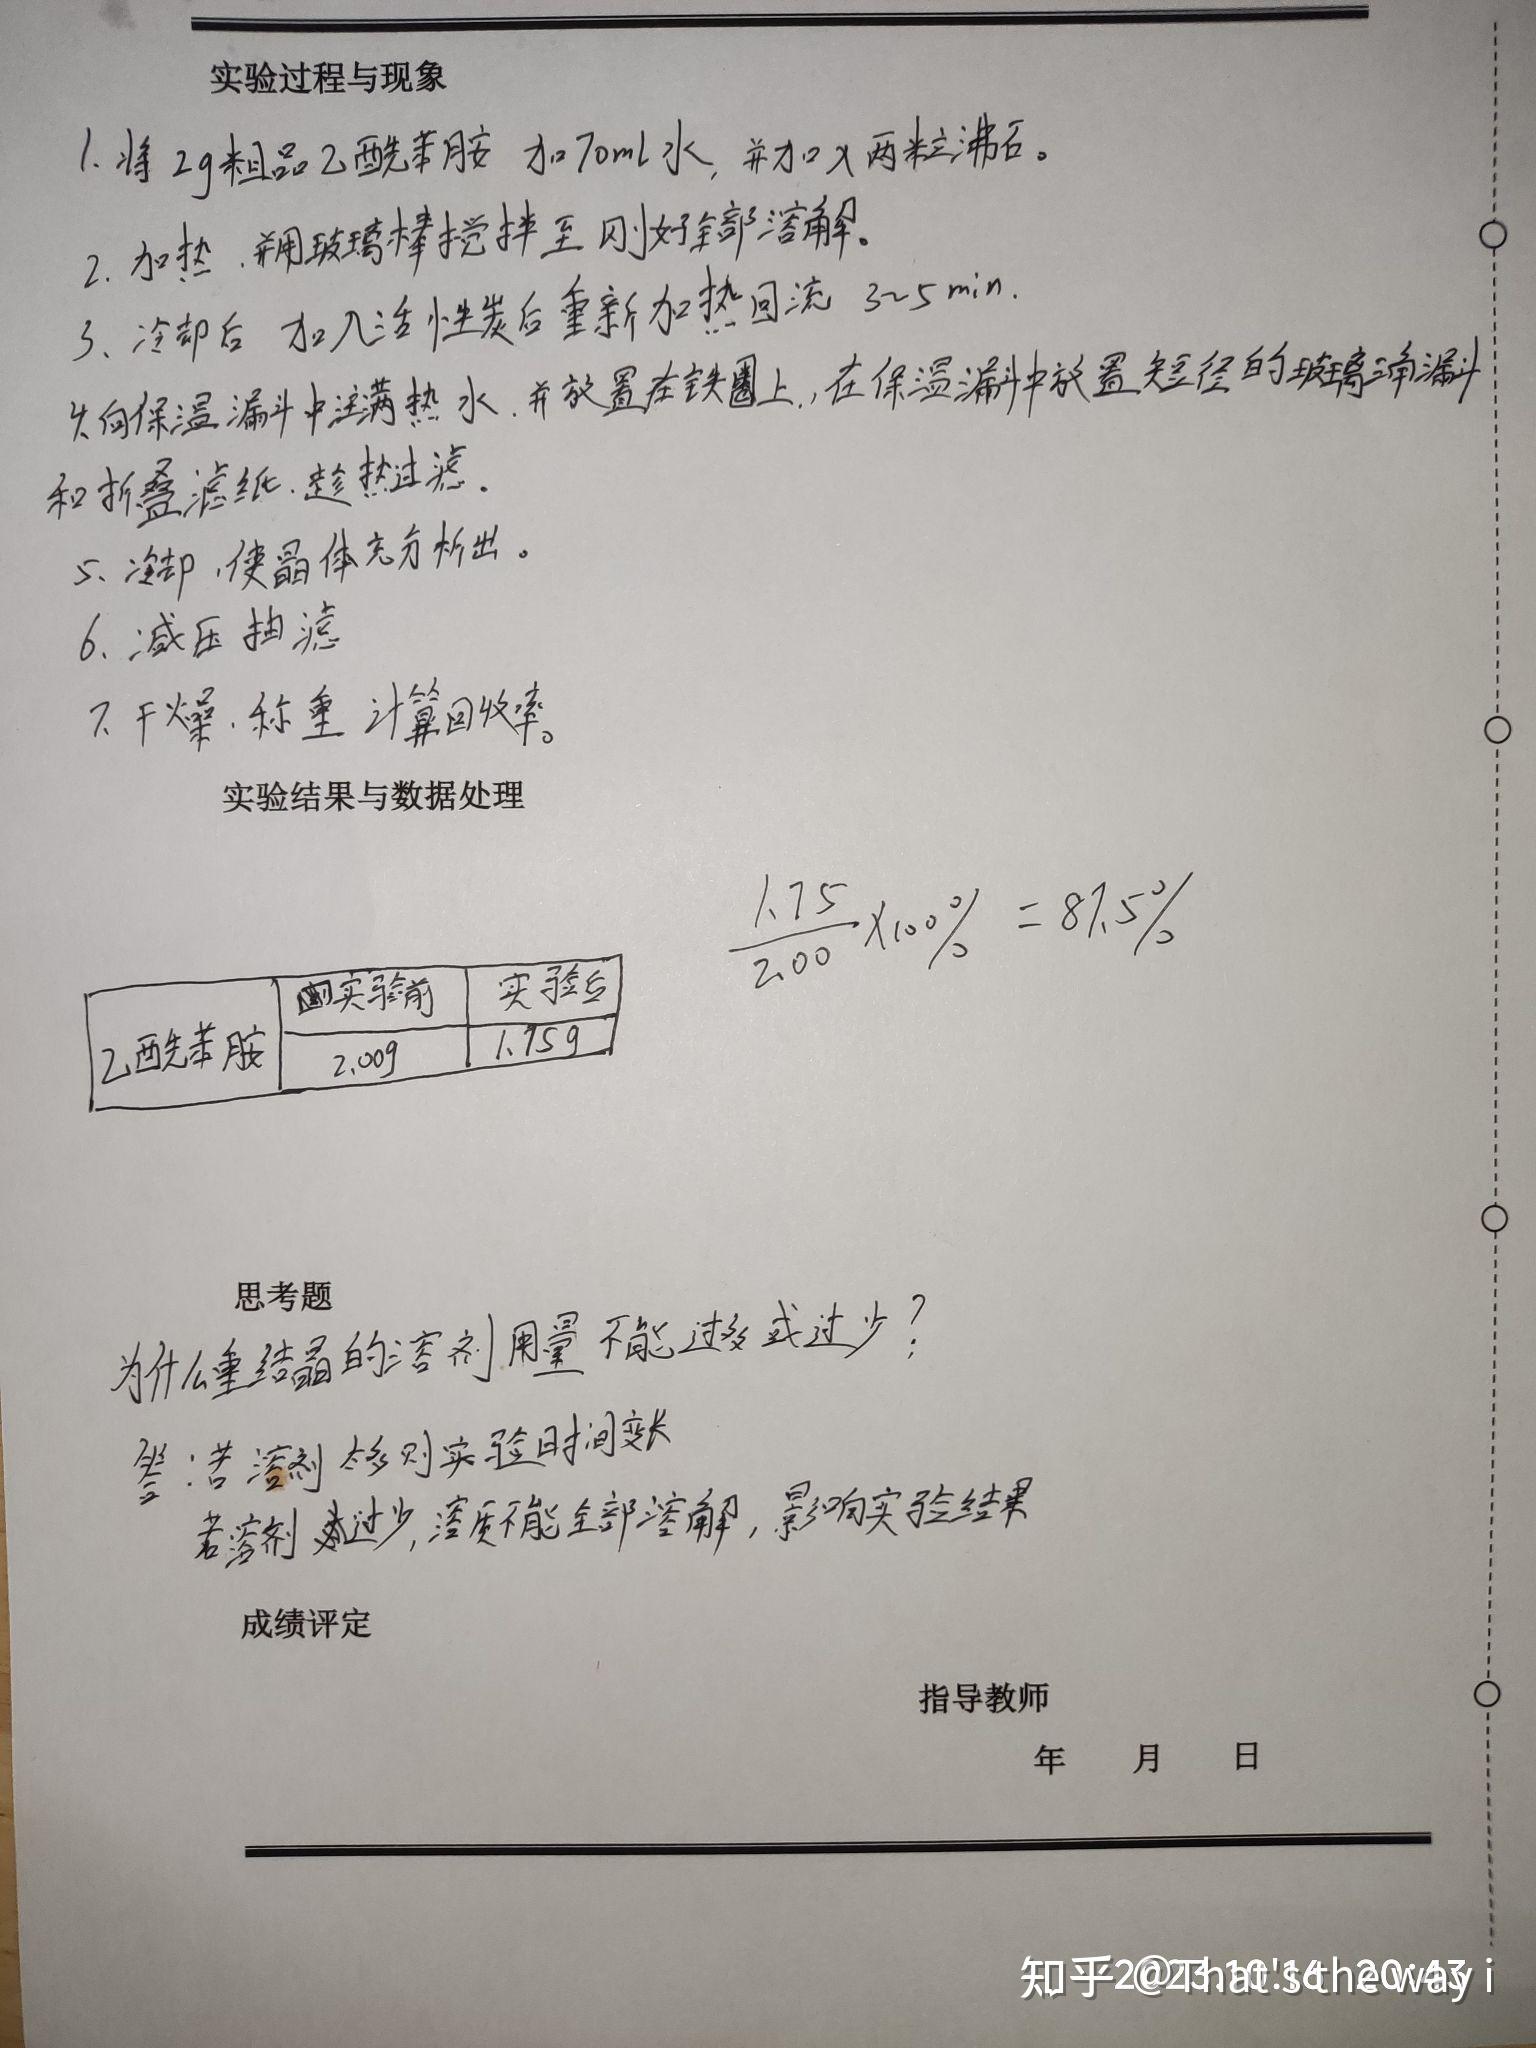 实验过程与现象
1. 将2g粗品乙酰苯胺 加70ml水, 并加入两粒沸石。
2. 加热.并用玻璃棒搅拌至刚好全部溶解。
3、冷却后 加入活性炭后重新加热回流 3~5 min.
4.向保温漏斗中注满热水.并放置在铁圈上,在保温漏斗中放置短径的玻璃漏斗
和折叠滤纸.趁热过滤.
5、冷却,使晶体充分析出。
6、减压抽滤
7.干燥.称重 计算回收率。
实验结果与数据处理
1.75/2.00 ×100% = 87.5%
实验前 实验后
乙酰苯胺 2.00g 1.75g
思考题
为什么重结晶的溶剂用量不能过多或过少?
答:若溶剂太多则实验时间变长
若溶剂过少,溶质不能全部溶解,影响实验结果
成绩评定
指导教师
年 月 日
知乎 @That's the way i
2023.10.14 20:43